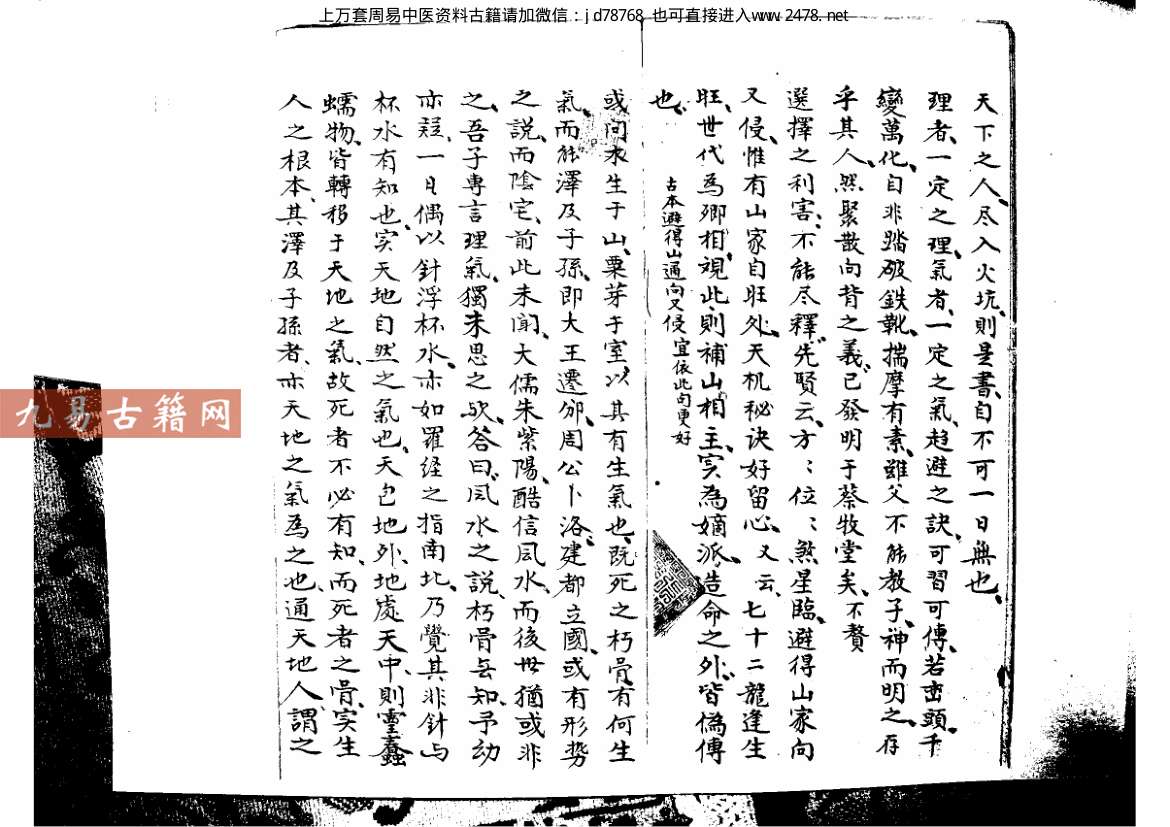 上万套周易中医资料古籍请加微信：jd78768 也可直接进入www.2478.net
天下之人、尽入火坑、則是書、自不可一日無也、
理者、一定之理、氣者、一定之氣、趋避之訣、可習可傳、若巒頭、千
變萬化、自非踏破鉄靴、揣摩有素、雖父不能教子、神而明之、存
乎其人、然聚散向背之義、已發明于蔡牧堂矣、不贅
選擇之利害、不能尽釋、先賢云、方：位：煞星臨、避得山家向
又侵、惟有山家自旺处、天机秘诀好留心、又云、七十二龍逢生
旺、世代為卿相、視此、則補山相主、实為嫡派、造命之外、皆偽傳
也、
古本避得山通向又侵 宜依此句更好
或问木生于山、粟芽于室、以其有生氣也、既死之朽骨、有何生
氣、而能澤及子孫、即大王遷邠、周公卜洛、建都立國、或有形势
之説、而陰宅、前此未聞、大儒朱紫陽、酷信风水、而後世猶或非
之、吾子專言理氣、獨未思之欤、答曰、风水之説、朽骨無知、予幼
亦疑、一日偶以針浮杯水、亦如羅经之指南北、乃覺其非針与
杯水有知也、实天地自然之氣也、天包地外、地處天中、則靈蠢
蠕物、皆轉移于天地之氣、故死者不必有知、而死者之骨、实生
人之根本、其澤及子孫者、亦天地之氣為之也、通天地人、謂之
九易古籍网